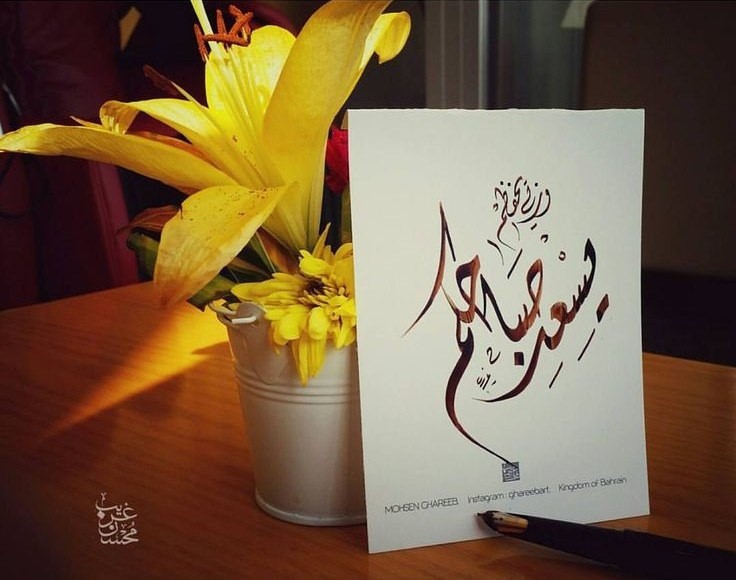 يسعد صباحكم
MOHSEN GHAREEB. Instagram : ghareebart. Kingdom of Bahrain
محسن غريب